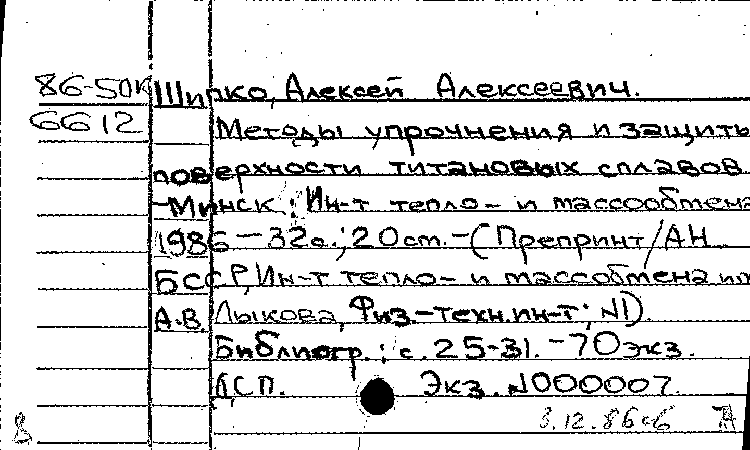 86-50К Шипко, Алексей Алексеевич.
6612 Методы упрочнения и защиты
поверхности титановых сплавов
-Минск: Ин-т тепло- и массообмена
1986-32с.; 20см.-(Препринт/АН
БССР, Ин-т тепло- и массобмена им
А.В. Лыкова, Физ.-техн.ин-т; N1).
Библиогр.: с. 25-31. -70экз.
ДСП. Экз. N000007.
3.12.86